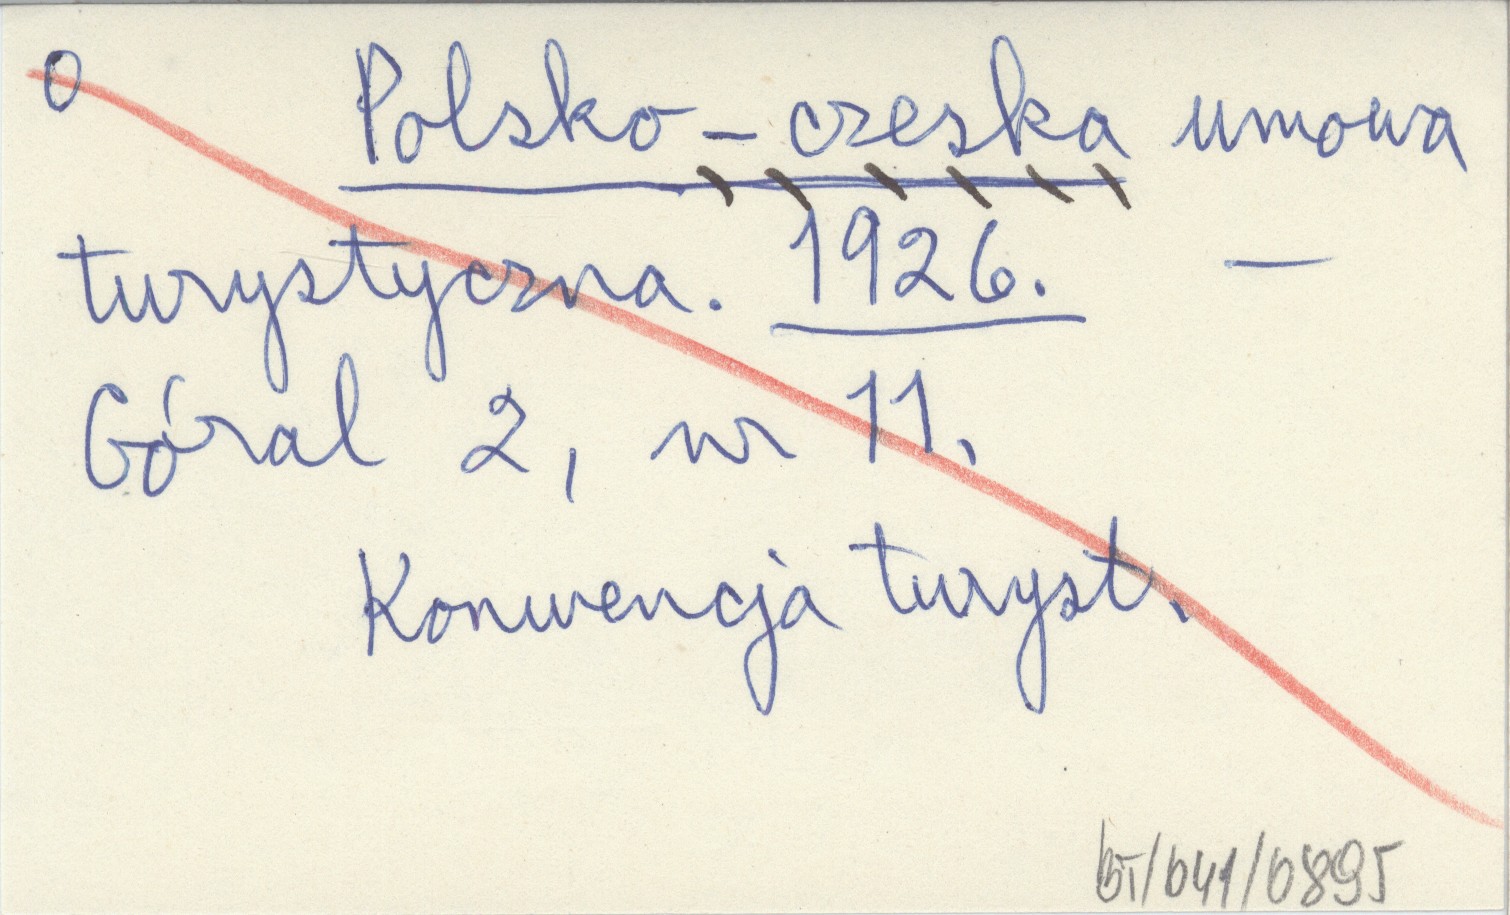 O Polsko-czeska umowa
turystyczna. 1926. —
Góral 2, nr 11.
Konwencja turyst.
bT/041/0895